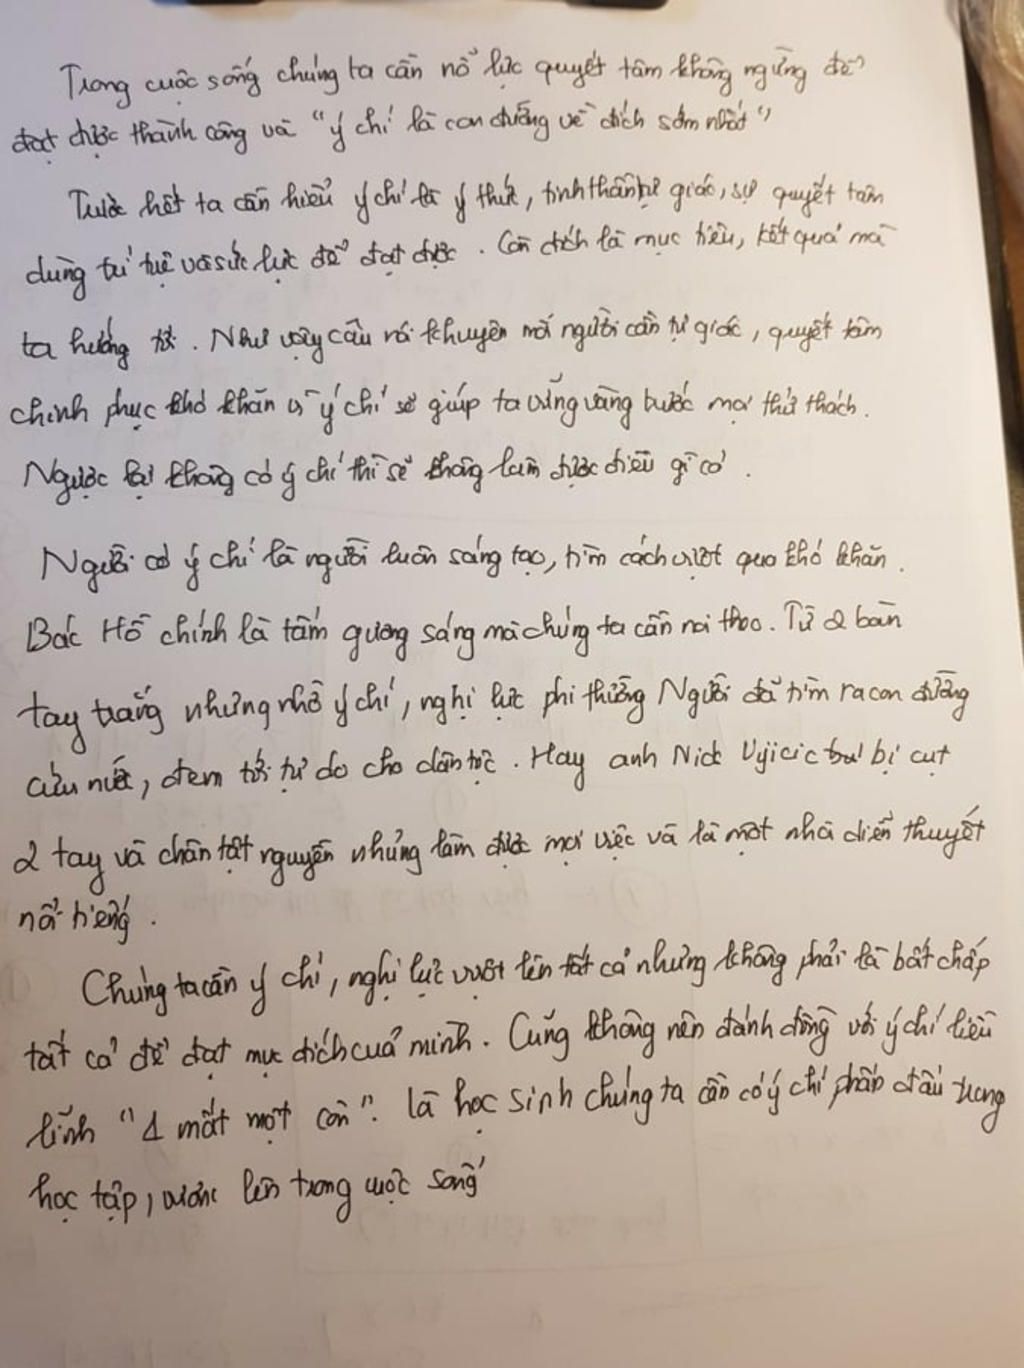 Trong cuộc sống chúng ta cần nổ lực quyết tâm không ngừng để
đạt được thành công và "ý chí là con đường về đích sớm nhất"
Trước hết ta cần hiểu ý chí là ý thức, tinh thần tự giác, sự quyết tâm
dùng trí tuệ và sức lực để đạt được. Còn đích là mục tiêu, kết quả mà
ta hướng tới. Như vậy câu nói khuyên mọi người cần tự giác, quyết tâm
chinh phục khó khăn vì ý chí sẽ giúp ta vững vàng bước mọi thử thách.
Ngược lại không có ý chí thì sẽ không làm được điều gì cả.
Người có ý chí là người luôn sáng tạo, tìm cách vượt qua khó khăn.
Bác Hồ chính là tấm gương sáng mà chúng ta cần noi theo. Từ 2 bàn
tay trắng nhưng nhờ ý chí, nghị lực phi thường Người đã tìm ra con đường
cứu nước, đem tới tự do cho dân tộc. Hay anh Nick Vujicic bị cụt
2 tay và chân tật nguyền nhưng làm được mọi việc và là một nhà diễn thuyết
nổi tiếng.
Chúng ta cần ý chí, nghị lực vượt lên tất cả nhưng không phải là bất chấp
tất cả để đạt mục đích của mình. Cũng không nên đánh đồng với ý chí liều
lĩnh "1 mất một còn". là học sinh chúng ta cần có ý chí phấn đấu trong
học tập, vươn lên trong cuộc sống